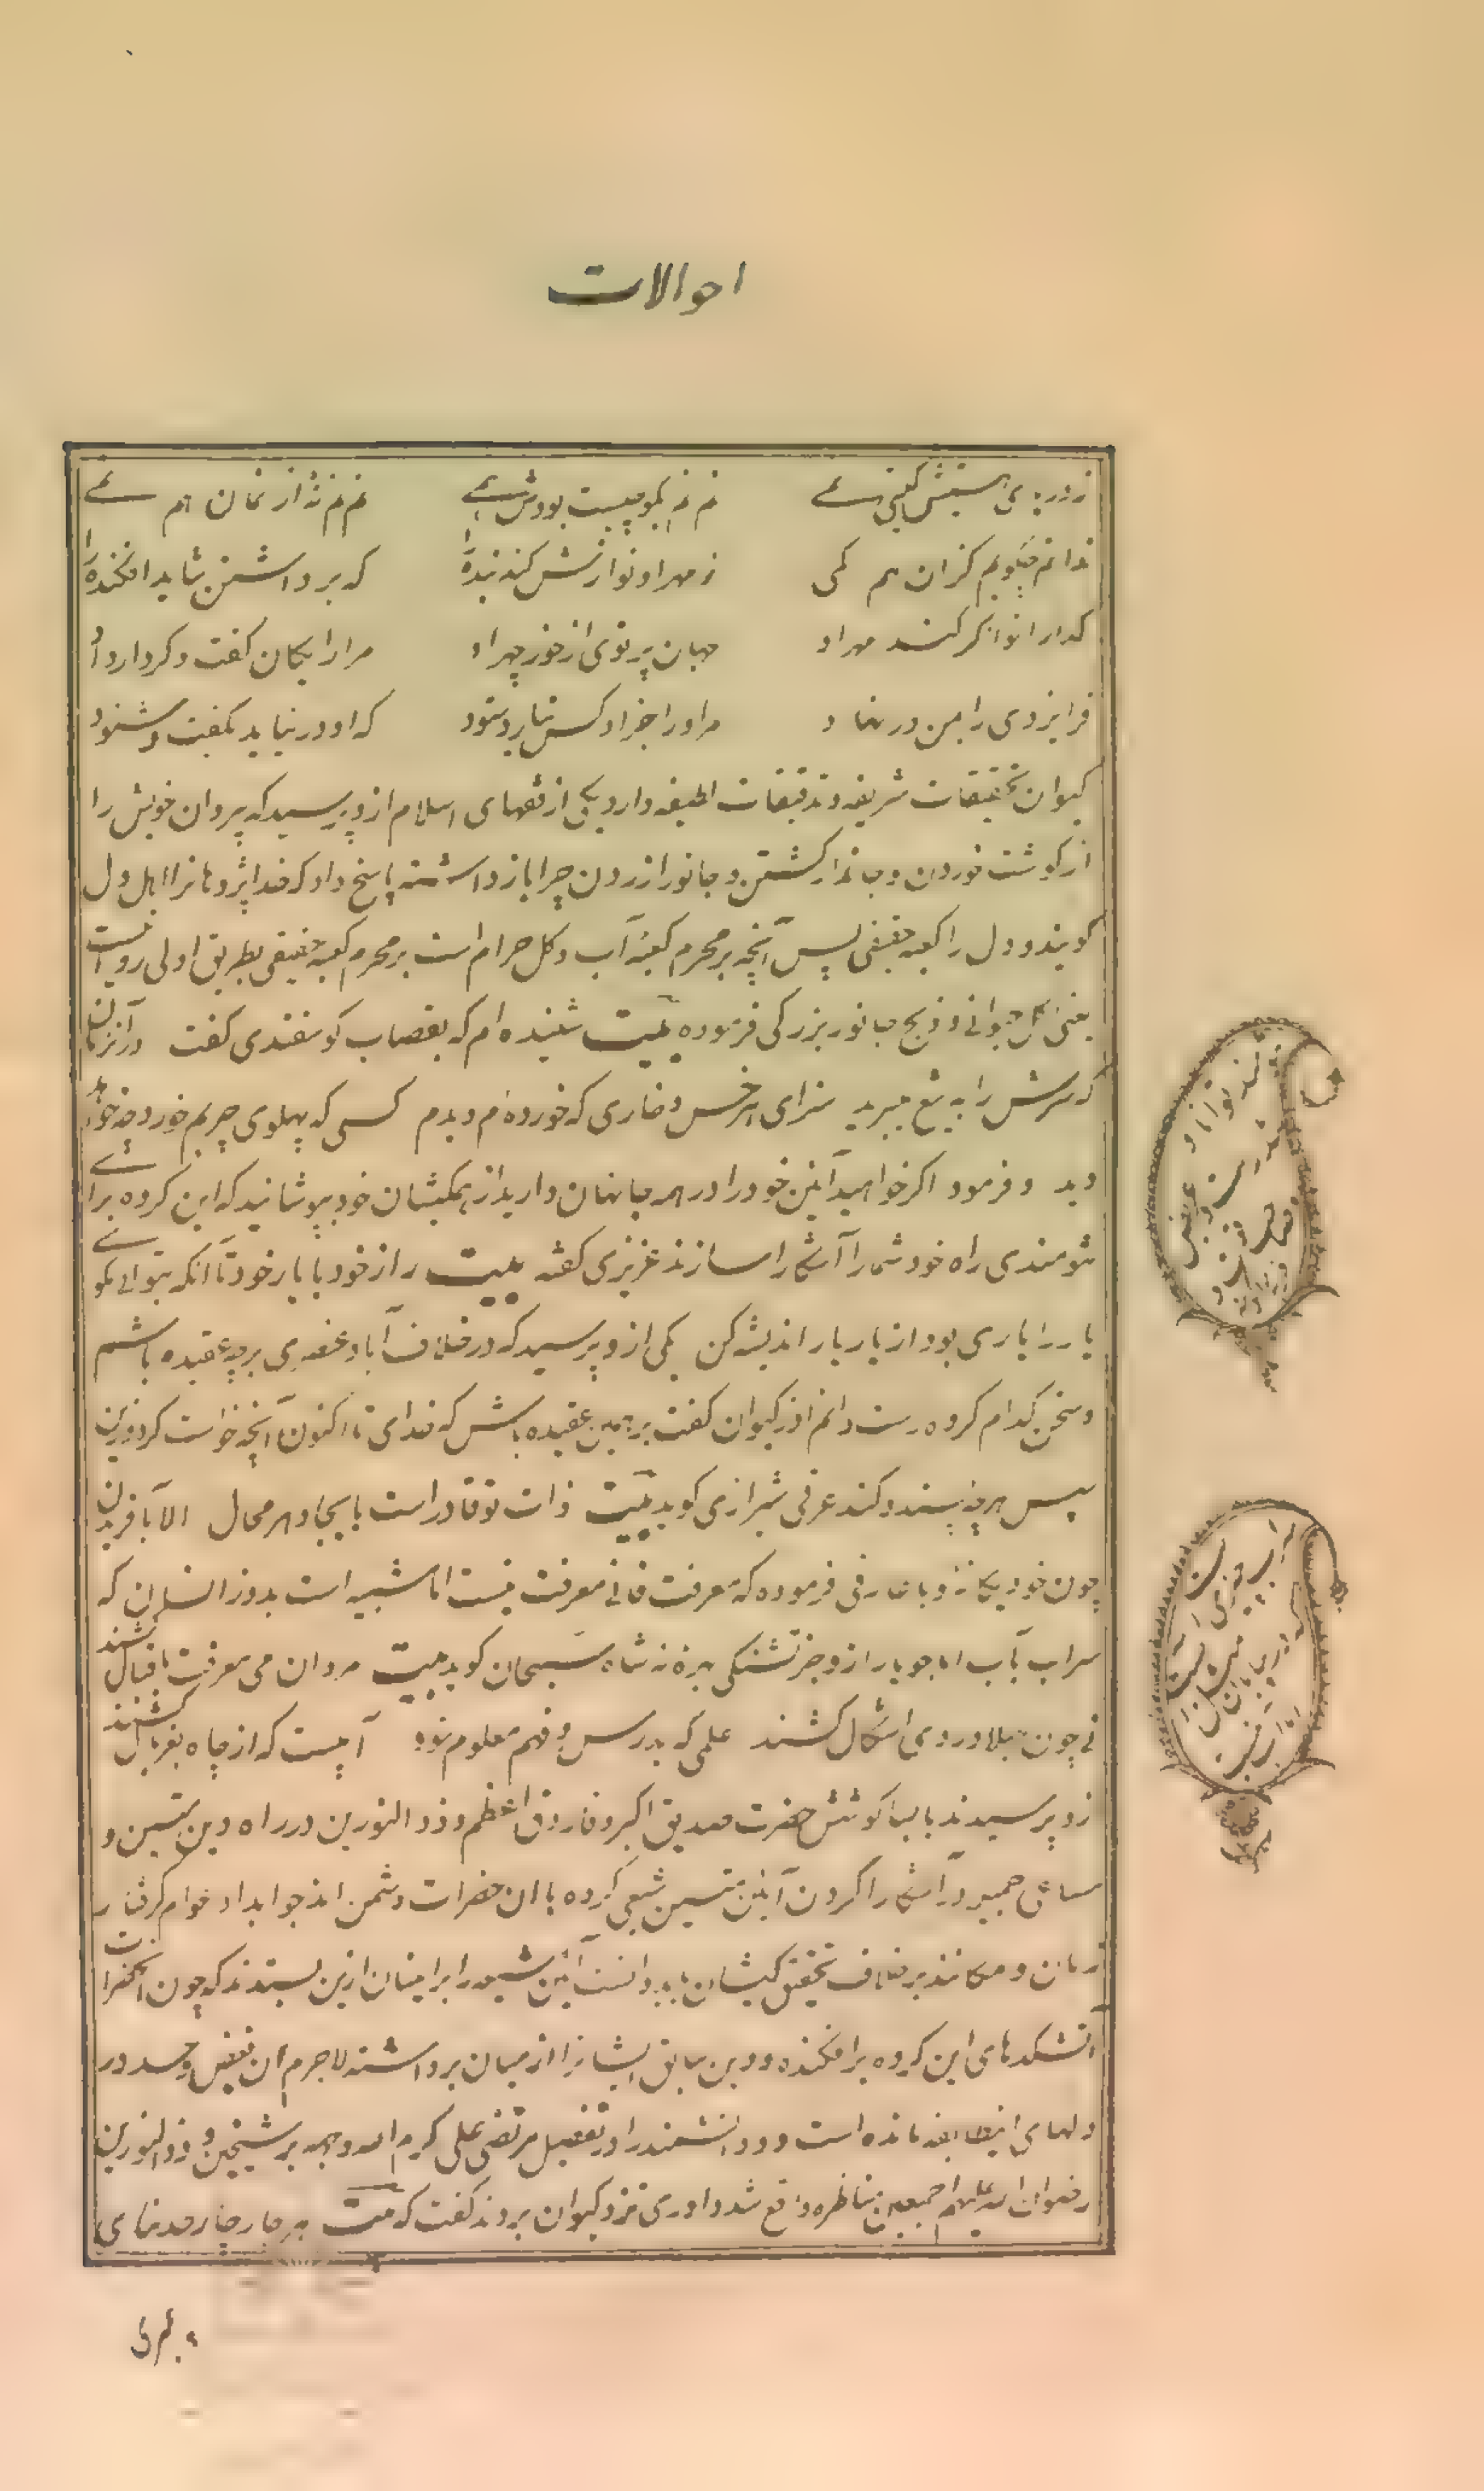 احوالات
ز دریای هستیش گیتی نمی نم نم بگو چیست بودش همی نم نم نه از نمان هم نمی
ندانم چگویم کزان هم کمی ز مهر او نوازش کند بنده را که برداشتن شاید افکنده را
گدا را توانگر کند مهر او جهان پرتوی از خور چهر او مرا رایگان گفت و کردار داد
فر ایزدی را بمن در نهاد مر او را جز او کس نیارد ستود که او در نیاید بگفت و شنود
کیوان تحقیقات شریفه و تدقیقات لطیفه دارد یکی از فقهای اسلام ازو پرسید که پیروان خویش را
از گوشت خوردن و جاندار کشتن و جانور آزردن چرا بازداشته پاسخ داد که خداپژوهانرا اهل دل
گویند و دل را کعبه حقیقی پس آنچه بر محرم کعبه آب و گل حرام است بر محرم کعبه حقیقی بطریق اولی روا نیست
یعنی اکل حیوانی و ذبح جانور بزرگی فرموده بیت شنیده ام که بقصاب گوسفندی گفت در آن زمان
که سرش را به تیغ میبرید سزای هر خس و خاری که خورده ام دیدم کسی که پهلوی چربم خورد چه خواهد
دید و فرمود اگر خواهید آئین خود را در همه جا نهان دارید از همکیشان خود بپوشانید که این گروه برای
تنومندی راه خود شما را آشکارا سازند عزیزی گفته بیت راز خود با یار خود تا آنکه بتوانی مگو
یار را یاری بود از یار یار اندیشه کن یکی ازو پرسید که در خلاف آباد عنصری بر چه عقیده باشم
و سخن کدام گروه راست دانم آذر کیوان گفت بر همین عقیده باش که خدای تا اکنون آنچه خواست کرد و زین
پس هر چه پسندد کند عرفی شیرازی گوید بیت ذات تو قادر است بایجاد هر محال الا بآفریدن
چون خود یگانه و با عارفی فرموده که معرفت فانی معرفت نیست اما شبیه است بدو زانسان که
سراب بآب اما جویا را ازو جز تشنگی بهره نه شاه سبحان گوید بیت مردان می معرفت باقبال کشند
نی چون جهلا دردی اشکال کشند علمی که بدرس و فهم معلوم شود آبیست که از چاه بغربال کشند
ازو پرسیدند با این کوشش حضرت صدیق اکبر و فاروق اعظم و ذو النورین در راه دین متین و
مساعی جمیله در آشکارا کردن آئین مبین شیعی گروه با آن حضرات دشمن اند جواب داد عوام گرفتار
زمان و مکانند برخلاف تحقیق کیشان باید دانست آئین شیعه را ایرانیان ازین پسندند که چون آنحضرات
آتشکدهای این گروه برافکنده و دین سابق ایشانرا از میان برداشته لاجرم آن بغض و حسد در
دلهای اینطایفه مانده است و دو دانشمند را در تفضیل مرتضی علی کرم الله وجهه بر شیخین و ذو النورین
رضوان الله علیهم اجمعین مناظره واقع شد داوری نزد کیوان بردند گفت که بیت هر چار چار حد بنای